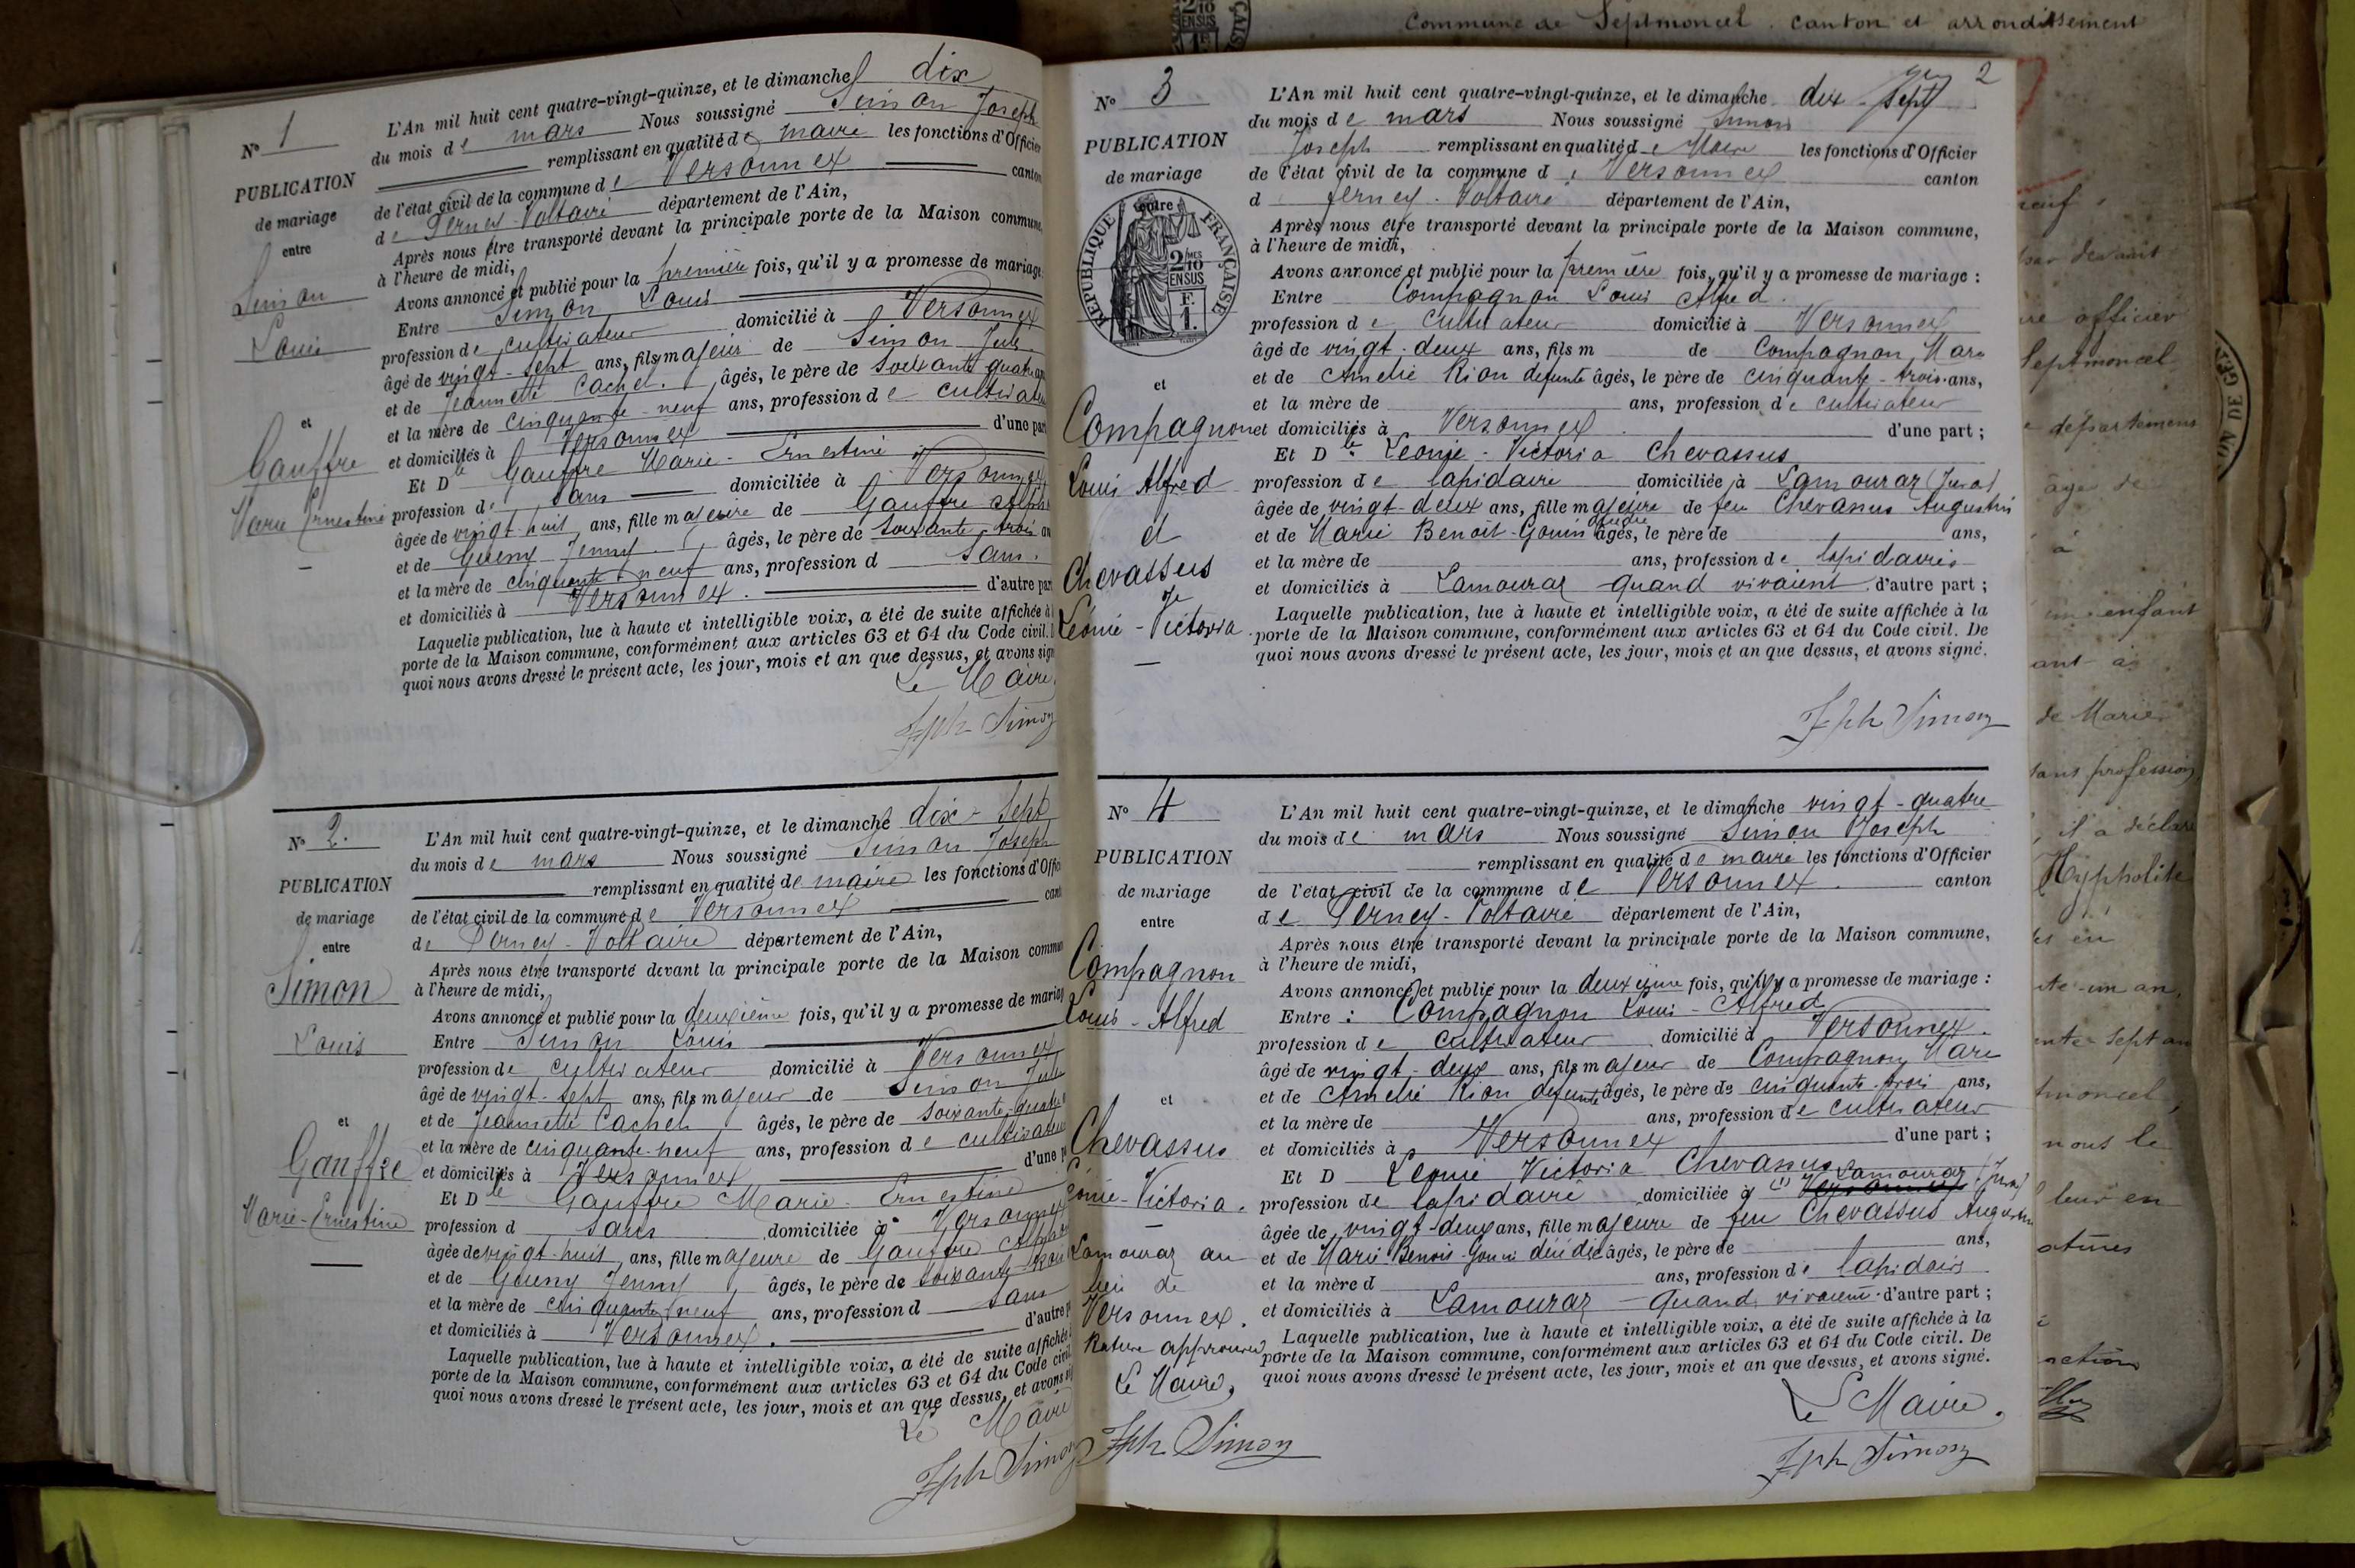 Commune de Septmoncel canton et arrondissement
N° 1
PUBLICATION
de mariage
entre
Simon
Louis
et
Gauffre
Marie Ernestine
L'An mil huit cent quatre-vingt-quinze, et le dimanche dix
du mois de mars Nous soussigné Simon Joseph
remplissant en qualité de maire les fonctions d'Officier
de l'état civil de la commune de Versonnex canton
de Ferney-Voltaire département de l'Ain,
Après nous être transporté devant la principale porte de la Maison commune,
à l'heure de midi,
Avons annoncé et publié pour la première fois, qu'il y a promesse de mariage
Entre Simon Louis
profession de cultivateur domicilié à Versonnex
âgé de vingt-sept ans, fils majeur de Simon Jules
et de Jeannette Cachet. âgés, le père de soixante quatre
et la mère de cinquante-neuf ans, profession de cultivateur
et domiciliés à Versonnex d'une part
Et Dlle Gauffre Marie-Ernestine
profession de sans domiciliée à Versonnex
âgée de vingt-huit ans, fille majeure de Gauffre
et de Goueny Jenny âgés, le père de soixante trois
et la mère de cinquante-neuf ans, profession d sans.
et domiciliés à Versonnex. d'autre part
Laquelle publication, lue à haute et intelligible voix, a été de suite affichée à
porte de la Maison commune, conformément aux articles 63 et 64 du Code civil.
quoi nous avons dressé le présent acte, les jour, mois et an que dessus, et avons
Le Maire
Jph Simon
N° 2.
PUBLICATION
de mariage
entre
Simon
Louis
et
Gauffre
Marie-Ernestine
L'An mil huit cent quatre-vingt-quinze, et le dimanche dix-sept
du mois de mars Nous soussigné Simon Joseph
remplissant en qualité de maire les fonctions d'Offi
de l'état civil de la commune de Versonnex cant
de Ferney-Voltaire département de l'Ain,
Après nous être transporté devant la principale porte de la Maison commun
à l'heure de midi,
Avons annoncé et publié pour la deuxième fois, qu'il y a promesse de mariag
Entre Simon Louis
profession de cultivateur domicilié à Versonnex
âgé de vingt-sept ans, fils majeur de Simon Jules
et de Jeannette Cachet âgés, le père de soixante-quatre
et la mère de cinquante-neuf ans, profession de cultivateur
et domiciliés à Versonnex d'une p
Et Dlle Gauffre Marie-Ernestine
profession d sans domiciliée à Versonnex
âgée de vingt-huit ans, fille majeure de Gauffre
et de Goueny Jenny âgés, le père de soixante-trois
et la mère de cinquante-neuf ans, profession d sans
et domiciliés à Versonnex. d'autre p
Laquelle publication, lue à haute et intelligible voix, a été de suite affichée
porte de la Maison commune, conformément aux articles 63 et 64 du Code civil
quoi nous avons dressé le présent acte, les jour, mois et an que dessus, et avons
Le Maire
Jph Simon
2
N° 3
PUBLICATION
de mariage
entre
RÉPUBLIQUE FRANÇAISE
2/10
EN SUS
F.
1.
et
Compagnon
Louis Alfred
et
Chevassus
Léonie-Victoria
L'An mil huit cent quatre-vingt-quinze, et le dimanche dix-sept
du mois de mars Nous soussigné Simon
Joseph remplissant en qualité de Maire les fonctions d'Officier
de l'état civil de la commune de Versonnex canton
d Ferney-Voltaire département de l'Ain,
Après nous être transporté devant la principale porte de la Maison commune,
à l'heure de midi,
Avons annoncé et publié pour la première fois, qu'il y a promesse de mariage :
Entre Compagnon Louis Alfred.
profession de cultivateur domicilié à Versonnex
âgé de vingt-deux ans, fils m de Compagnon Marc
et de Amélie Rion défunte âgés, le père de cinquante-trois ans,
et la mère de ans, profession de cultivateur
et domiciliés à Versonnex d'une part ;
Et Dlle Léonie-Victoria Chevassus
profession de lapidaire domiciliée à Lamoura (Jura)
âgée de vingt-deux ans, fille majeure de feu Chevassus Augustin
et de Marie Benoit-Gonin âgés, le père de ans,
et la mère de ans, profession de lapidaires
et domiciliés à Lamoura quand vivaient d'autre part ;
Laquelle publication, lue à haute et intelligible voix, a été de suite affichée à la
porte de la Maison commune, conformément aux articles 63 et 64 du Code civil. De
quoi nous avons dressé le présent acte, les jour, mois et an que dessus, et avons signé.
Jph Simon
N° 4
PUBLICATION
de mariage
entre
Compagnon
Louis-Alfred
et
Chevassus
Léonie-Victoria.
Lamoura au
lieu de
Versonnex.
Rature approuvée
Le Maire,
Jph Simon
L'An mil huit cent quatre-vingt-quinze, et le dimanche vingt-quatre
du mois de mars Nous soussigné Simon Joseph
remplissant en qualité de maire les fonctions d'Officier
de l'état civil de la commune de Versonnex canton
de Ferney-Voltaire département de l'Ain,
Après nous être transporté devant la principale porte de la Maison commune,
à l'heure de midi,
Avons annoncé et publié pour la deuxième fois, qu'il y a promesse de mariage :
Entre : Compagnon Louis-Alfred
profession de cultivateur domicilié à Versonnex.
âgé de vingt-deux ans, fils majeur de Compagnon Marc
et de Amélie Rion défunte âgés, le père de cinquante-trois ans,
et la mère de ans, profession de cultivateur
et domiciliés à Versonnex d'une part ;
Et D Léonie Victoria Chevassus
profession de lapidaire domiciliée à (1) Versonnex Lamoura (Jura)
âgée de vingt-deux ans, fille majeure de feu Chevassus Augustin
et de Marie Benoit-Gonin âgés, le père de ans,
et la mère d ans, profession de lapidaires
et domiciliés à Lamoura quand vivaient d'autre part ;
Laquelle publication, lue à haute et intelligible voix, a été de suite affichée à la
porte de la Maison commune, conformément aux articles 63 et 64 du Code civil. De
quoi nous avons dressé le présent acte, les jour, mois et an que dessus, et avons signé.
Le Maire.
Jph Simon
par devant
officier
Septmoncel
département
âgé de
à
enfant
de Marie
sans profession
il a déclaré
Hypholite
un an,
sept an
nous le
leur en